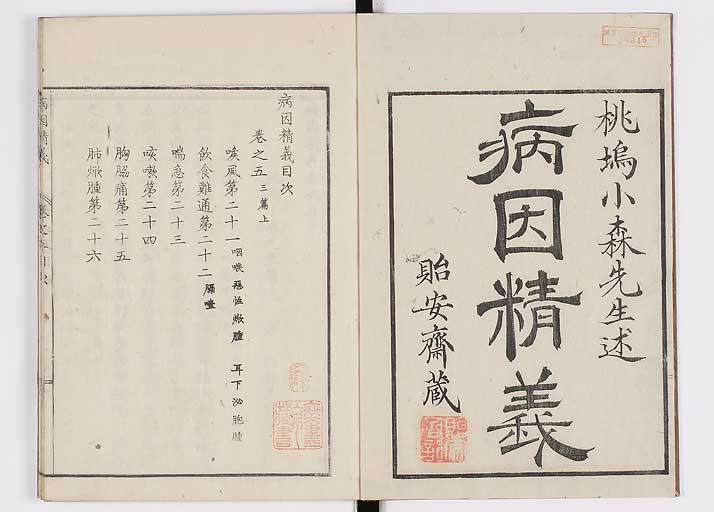 桃塢小森先生述
病因精義
貽安齋蔵
病因精義目次
卷之五 三篇上
喉風第二十一 咽喉 焮腫 耳下泌胞腫
飲食難通第二十二 膈噎
喘急第二十三
咳嗽第二十四
胸脇痛第二十五
肺焮腫第二十六
病因精義